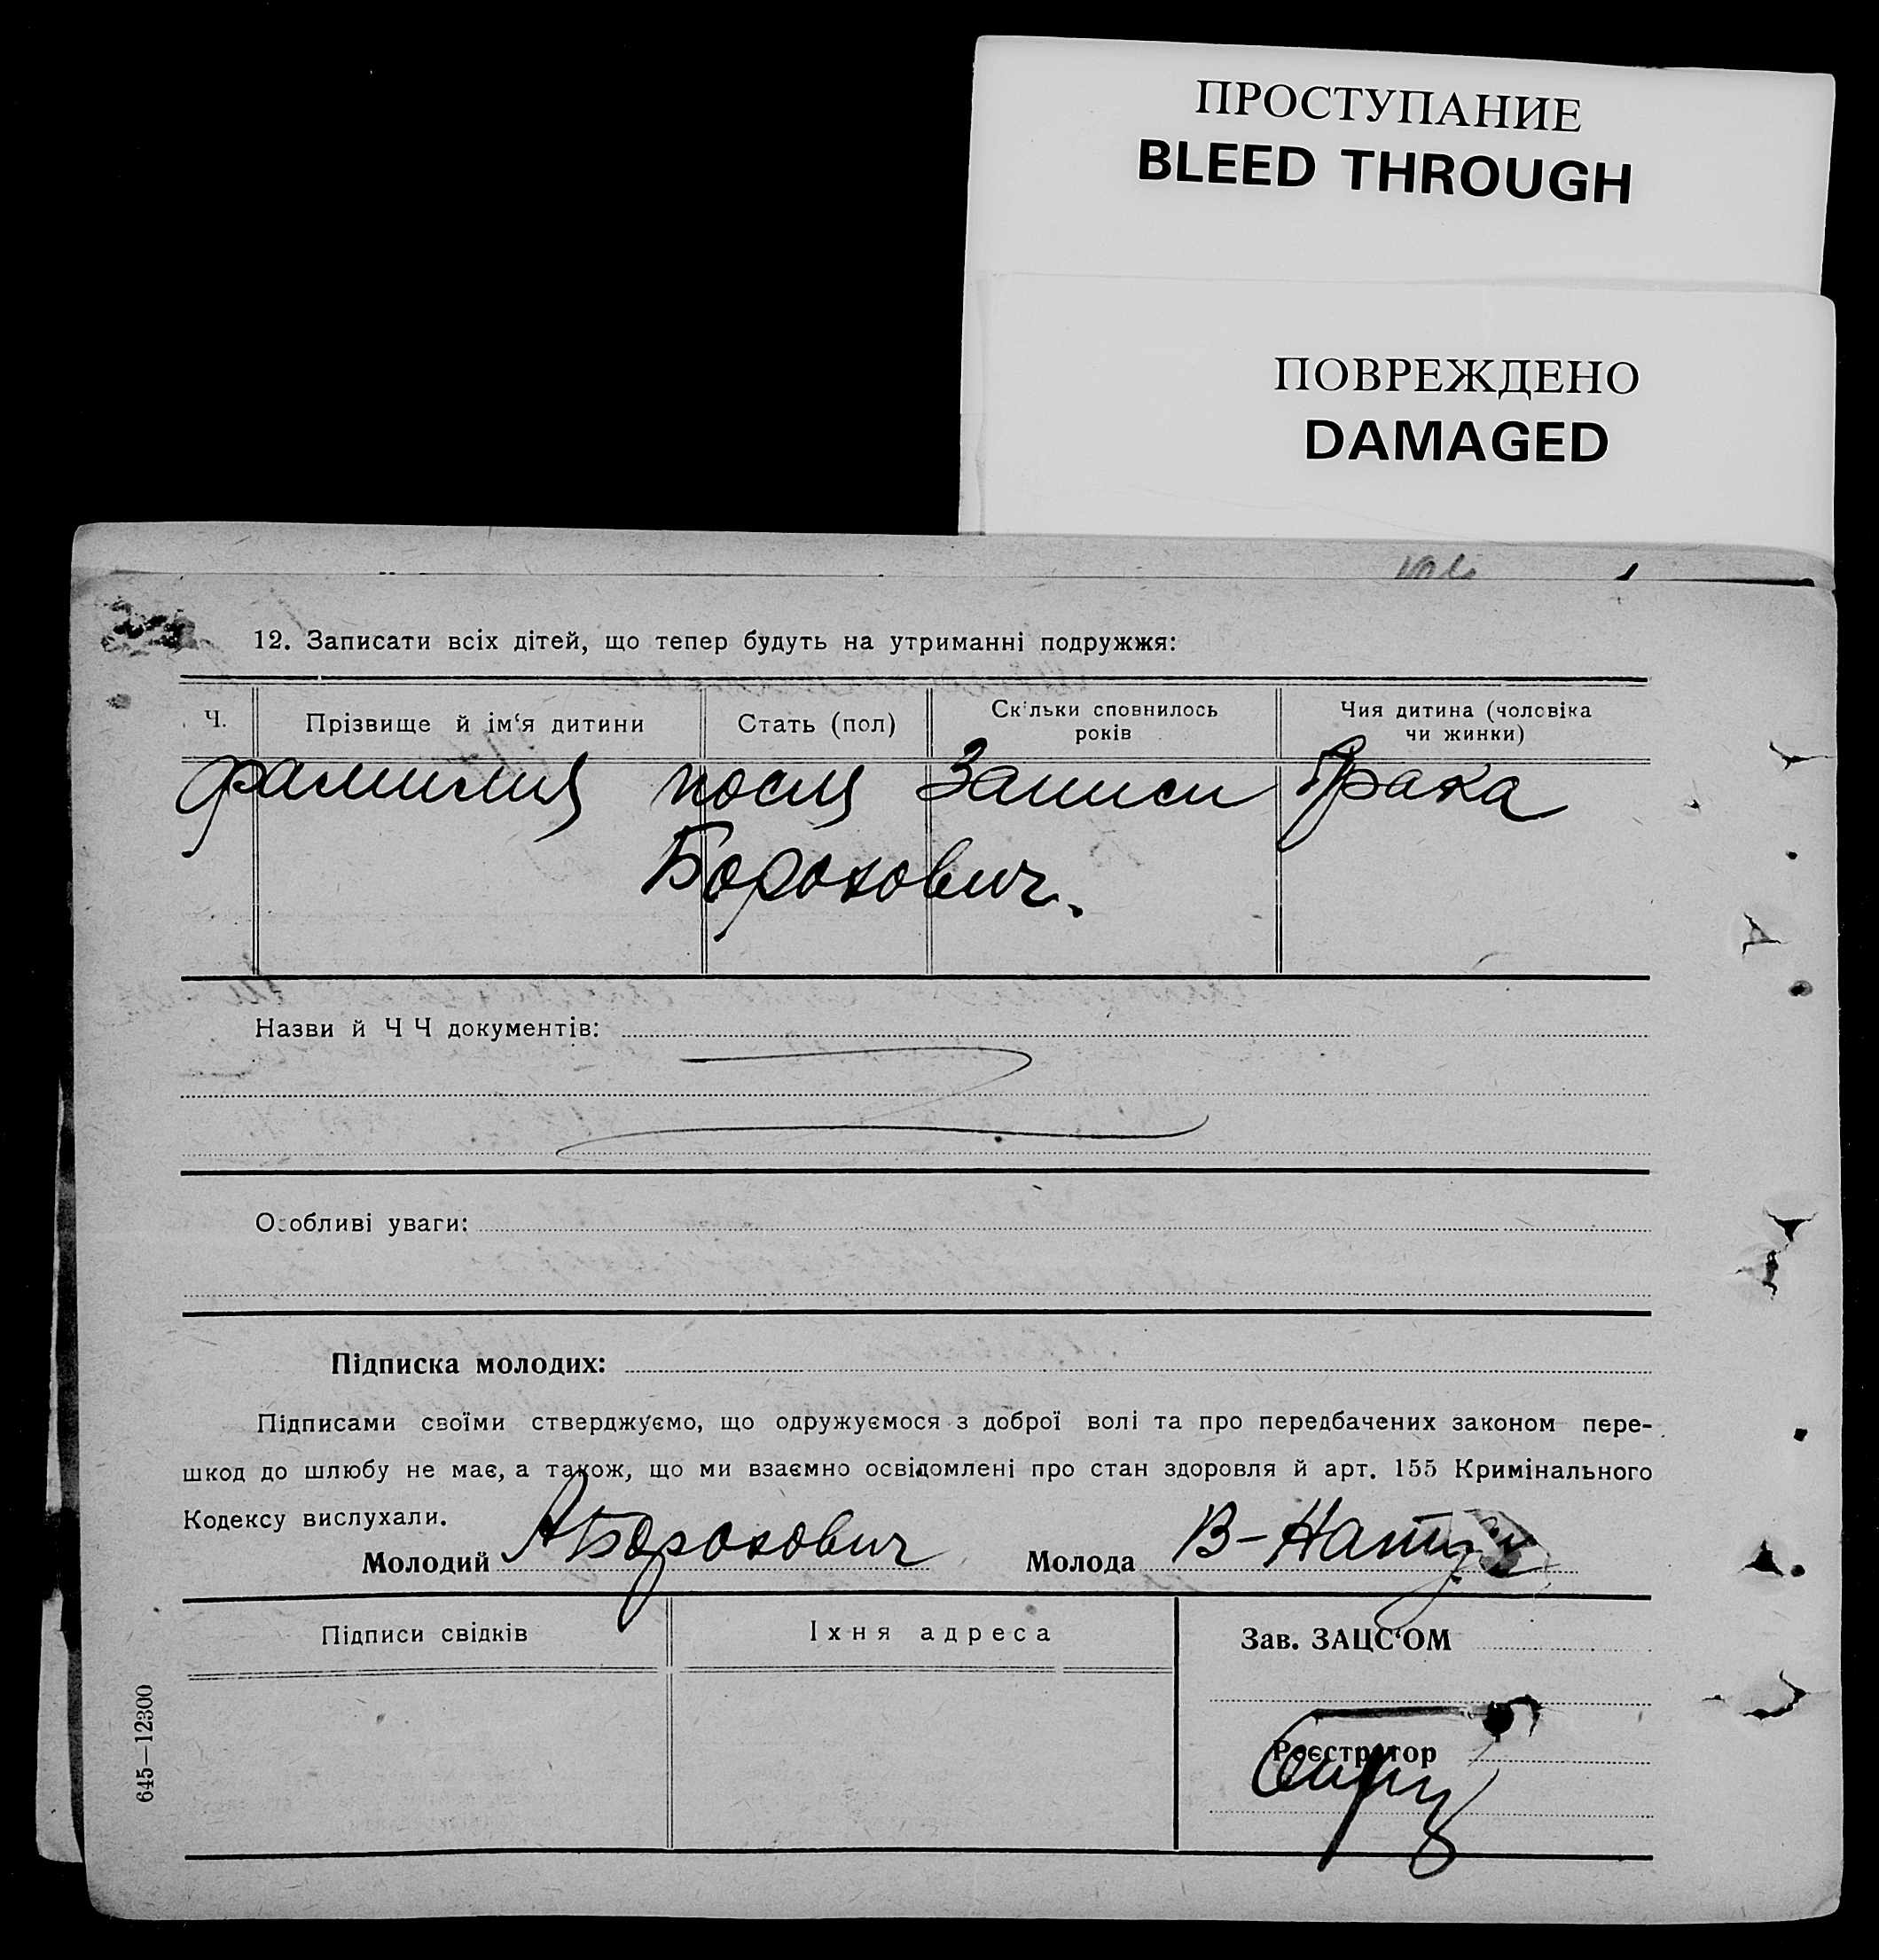 ПРОСТУПАНИЕ
BLEED THROUGH
ПОВРЕЖДЕНО
DAMAGED
12. Записати всіх дітей, що тепер будуть на утриманні подружжя:
Ч. Прізвище й ім‘я дитини Стать (пол) Скільки сповнилось років Чия дитина (чоловіка чи жинки)
фамилия посля Записи брака
Борохович.
Назви й ЧЧ документів:
Особливі уваги:
Підписка молодих:
Підписами своїми стверджуємо, що одружуємося з доброї волі та про передбачених законом пере-
шкод до шлюбу не має, а також, що ми взаємно освідомлені про стан здоровля й арт. 155 Кримінального
Кодексу вислухали.
Молодий АБорохович Молода В-
Підписи свідків Їхня адреса Зав. ЗАЦС‘ОМ
Реєстратор
645—12300